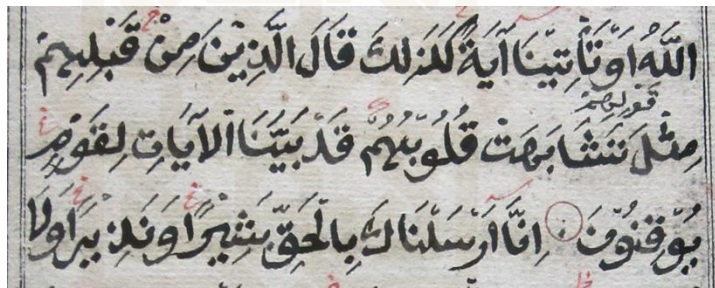 اللَّهُ اَوْ تَأْتِيْنَا آيَةٌ كَذَلِكَ قَالَ الَّذِيْنَ مِنْ قَبْلِهِمْ
قَوْلِهِمْ
مِثْلَ تَشَابَهَتْ قُلُوْبُهُمْ قَدْ بَيَّنَا الآيَاتِ لِقَوْمٍ
يُوْقِنُوْنَ اِنَّا اَرْسَلْنَاكَ بِالْحَقِّ بَشِيْرًا وَنَذِيرًا وَلَا